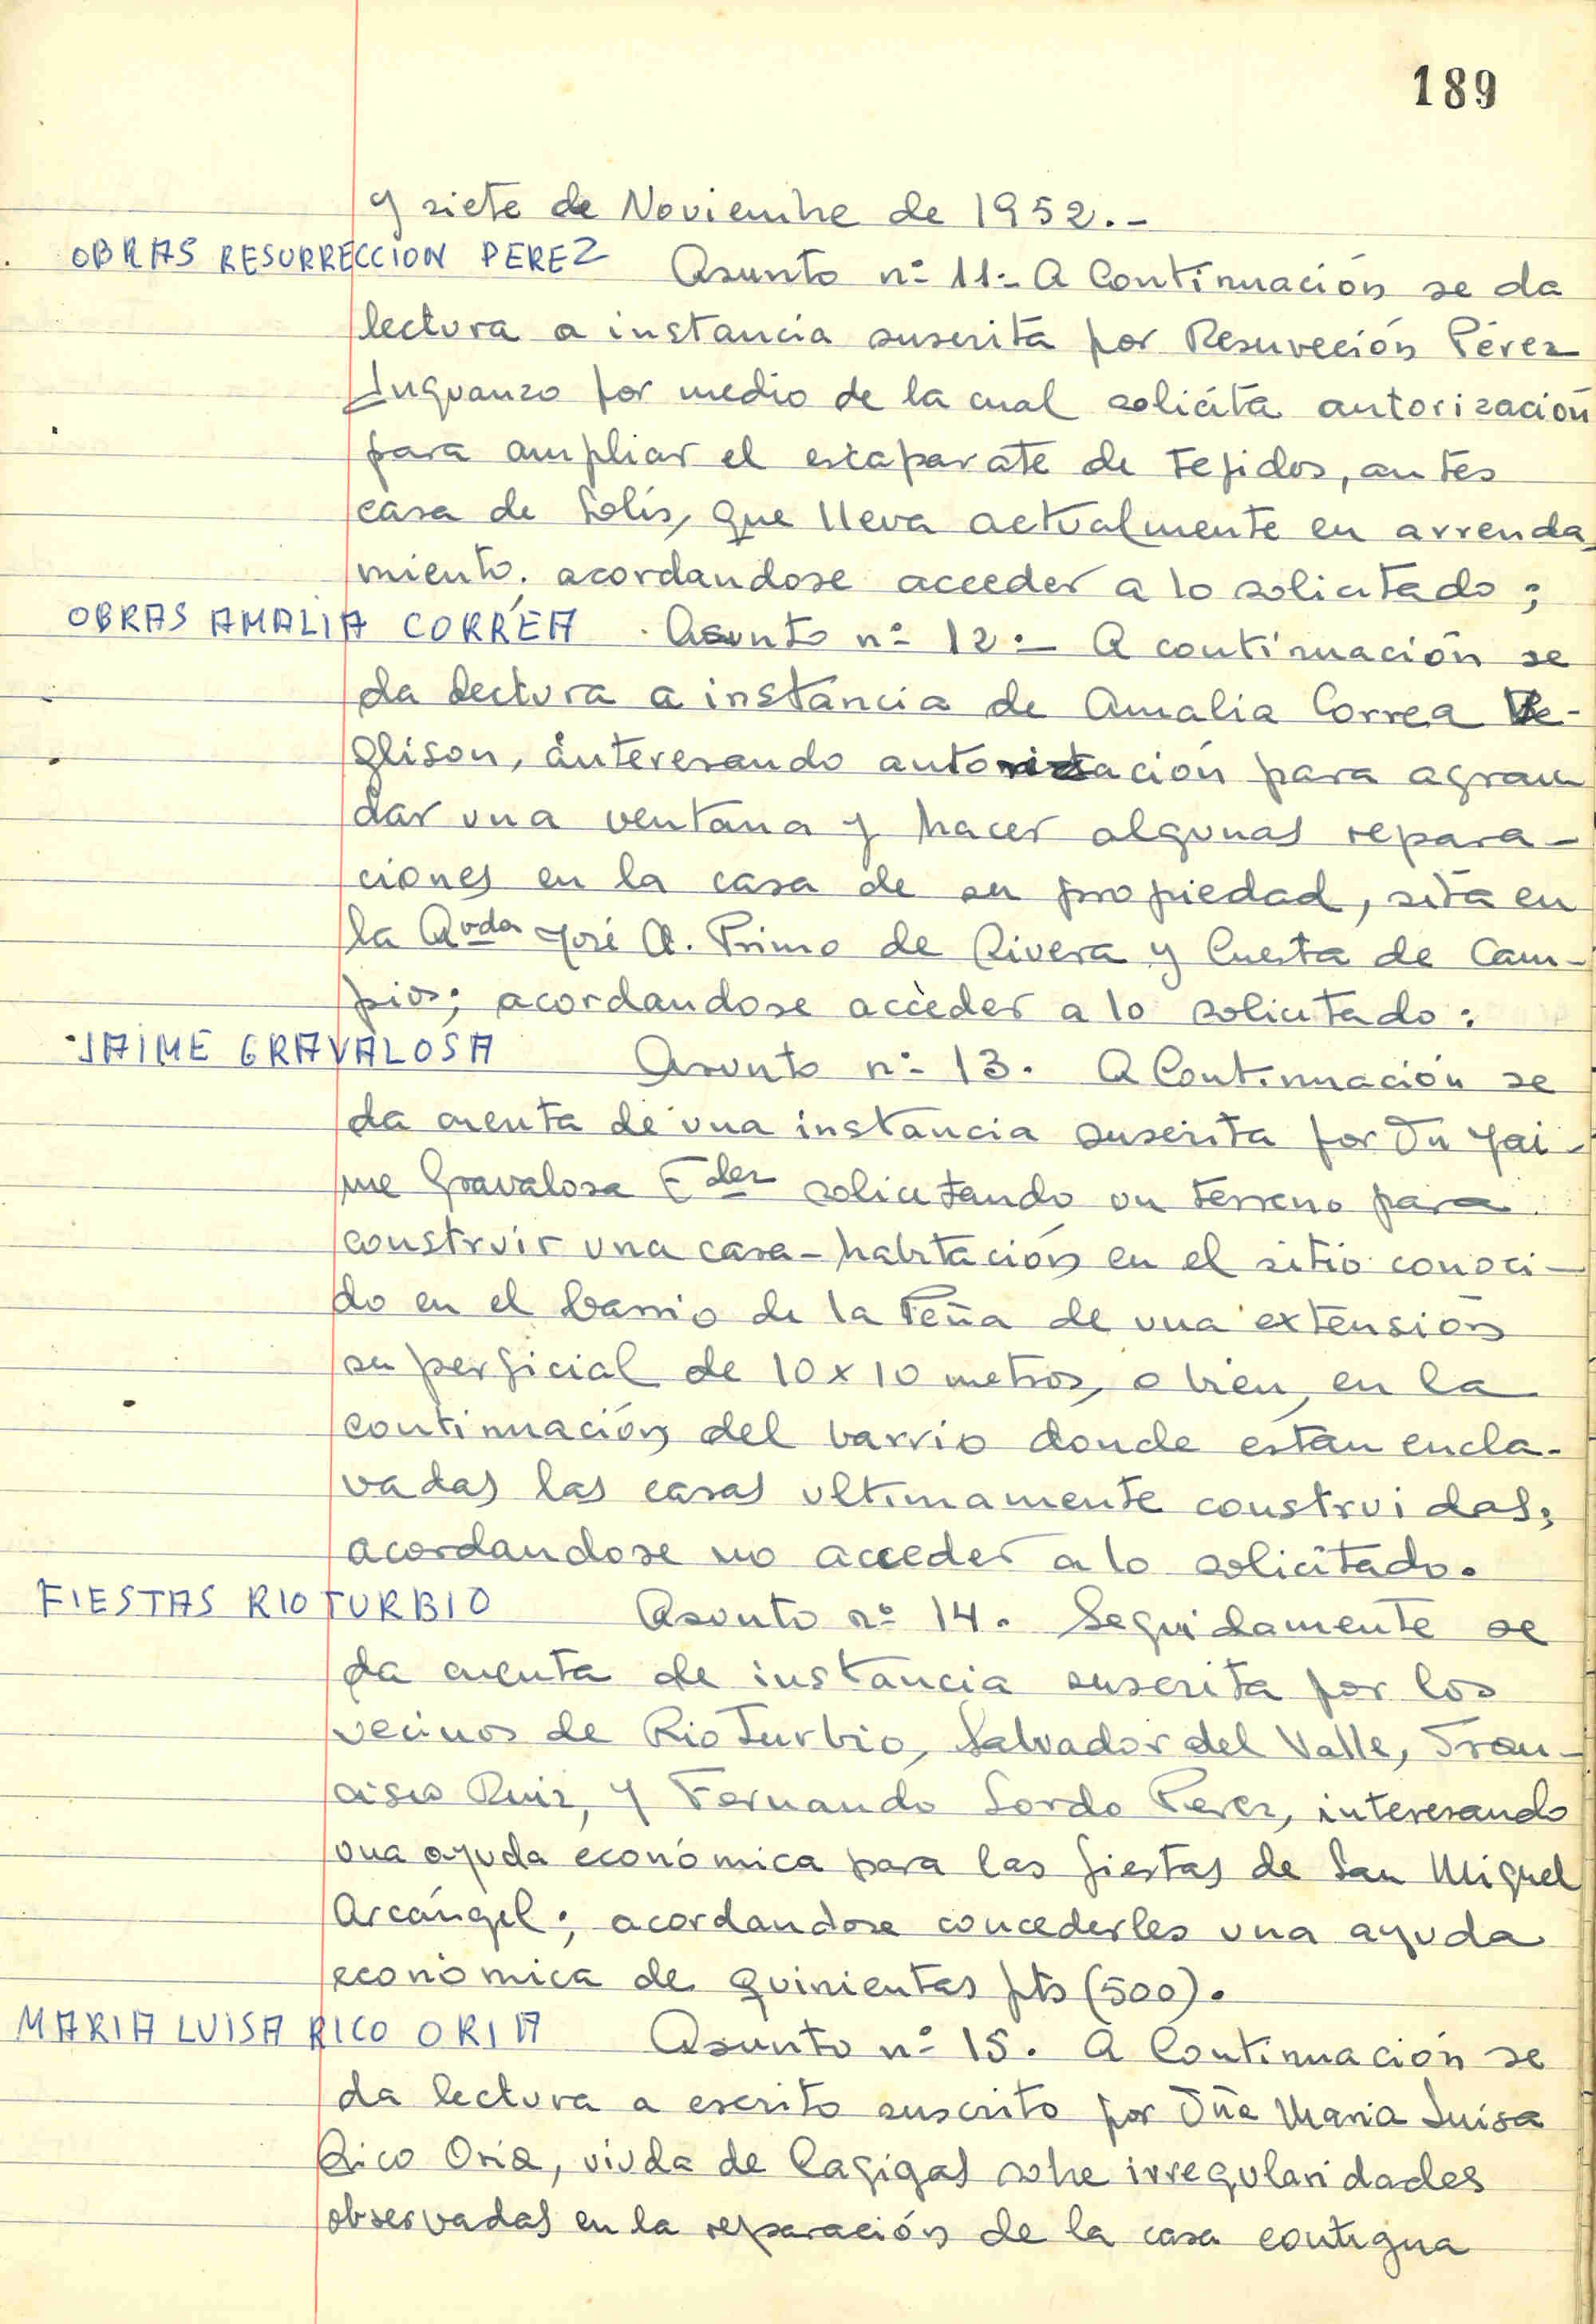 189
y siete de Noviembre de 1952.-
OBRAS RESURRECCION PEREZ Asunto nº 11.- A Continuación se da
lectura a instancia suscrita por Resurección Pérez
Inguanzo por medio de la cual solicita autorización
para ampliar el escaparate de Tejidos, antes
casa de Solís, que lleva actualmente en arrenda
miento. acordandose acceder a lo solicitado;
OBRAS AMALIA CORREA Asunto nº 12.- A continuación se
da lectura a instancia de Amalia Correa Ve-
glison, interesando autorización para agran
dar una ventana y hacer algunas repara-
ciones en la casa de su propiedad, sita en
la Avda José A. Primo de Rivera y Cuesta de Cam-
pios; acordandose acceder a lo solicitado:
JAIME GRAVALOSA Asunto nº 13. A Continuación se
da cuenta de una instancia suscrita por Dn Jai-
me Gravalosa Fdez solicitando un terreno para
construir una casa-habitación en el sitio conoci-
do en el barrio de la Peña de una extensión
superficial de 10 x 10 metros, o bien, en la
continuación del barrio donde están encla-
vadas las casas ultimamente construidas;
acordandose no acceder a lo solicitado.
FIESTAS RIOTURBIO Asunto nº 14. Seguidamente se
da cuenta de instancia suscrita por los
vecinos de Rio Turbio, Salvador del Valle, Fran-
cisco Ruiz, y Fernando Sordo Perez, interesando
una ayuda económica para las fiestas de San Miguel
Arcángel; acordandose concederles una ayuda
económica de quinientas pts (500).
MARIA LUISA RICO ORIA Asunto nº 15. A Continuación se
da lectura a escrito suscrito por Dña Maria Luisa
Rico Oria, viuda de Cagigas sobre irregularidades
observadas en la reparación de la casa contigua